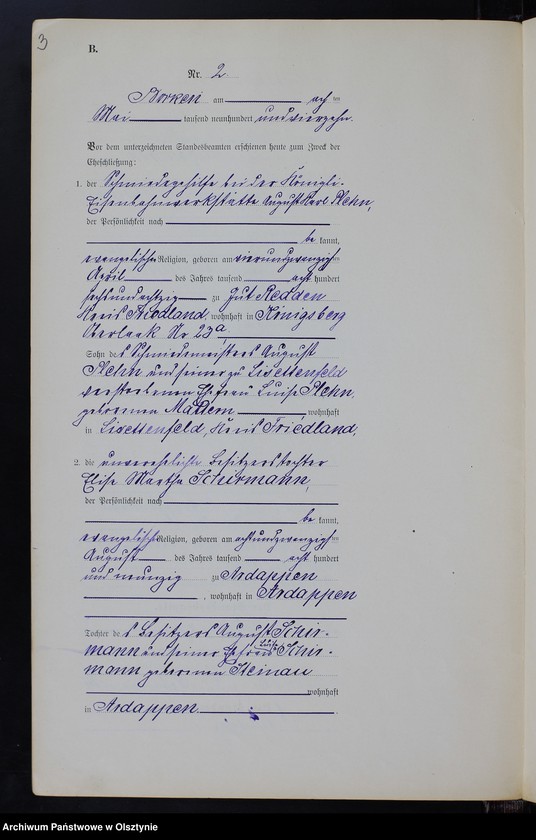 3
B.
Nr. 2.
Borken am acht ten
Mai tausend neunhundert und vierzehn.
Vor dem unterzeichneten Standesbeamten erschienen heute zum Zweck der
Eheschließung:
1. der Schmiedegehilfe bei der Königli-
Eisenbahnwerkstätte August Karl Plehn,
der Persönlichkeit nach
be kannt,
evangelischer Religion, geboren am vierundzwanzigsten
April des Jahres tausend acht hundert
sechsundachtzig zu Gut Redden
Kreis Friedland, wohnhaft in Königsberg
Oberlaak Nr 23a
Sohn des Schmiedemeisters August
Plehn und seiner zu Lisettenfeld
verstorbenen Ehefrau Luise Plehn,
geborenen wohnhaft
in Lisettenfeld, Kreis Friedland,
2. die unverehelichte Besitzerstochter
Elise Martha Schirmann,
der Persönlichkeit nach
be kannt,
evangelischer Religion, geboren am achtundzwanzigsten
August des Jahres tausend acht hundert
und neunzig zu Ardappen
, wohnhaft in Ardappen
Tochter des Besitzers August Schir-
mann und seiner Ehefrau Luise Schir-
mann geborenen Steinau
wohnhaft
in Ardappen.
Archiwum Państwowe w Olsztynie